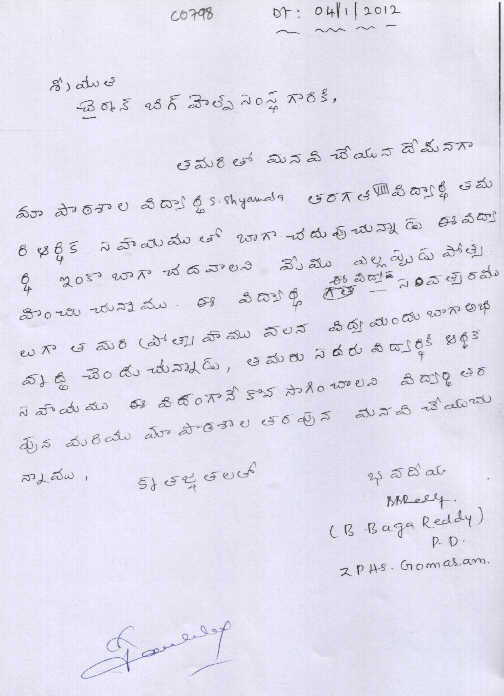 C0798 DT: 04/1/2012
శ్రీయుత
చైర్మాన్ బిగ్ హెల్ప్ సంస్థ గారికి,
తమరితో మనవి చేయునదేమనగా
మా పాఠశాల విద్యార్థి S. Shyamala తరగతి VIII విద్యార్థి తమ
రి ఆర్థిక సహాయముతో బాగా చదువుచున్నాడు ఈ విద్యా
ర్థి ఇంకా బాగా చదవాలని మేము ఎల్లప్పుడు ప్రోత్స
హించుచున్నాము. ఈ విద్యార్థి గత సంవత్సరము
లుగా తమరి ప్రోత్సాహము వలన విద్య యందు బాగా అభి
వృద్ధి చెందుచున్నాడు, తమరు సదరు విద్యార్థికి ఆర్థిక
సహాయము ఈ విధంగానే కొనసాగించాలని విద్యార్థి తర
పున మరియు మా పాఠశాల తరపున మనవి చేయుచు
న్నాము.
కృతజ్ఞతలతో
భవదీయ
BBReddy.
(B Baga Reddy)
P.D.
ZPHS. Gomaram.